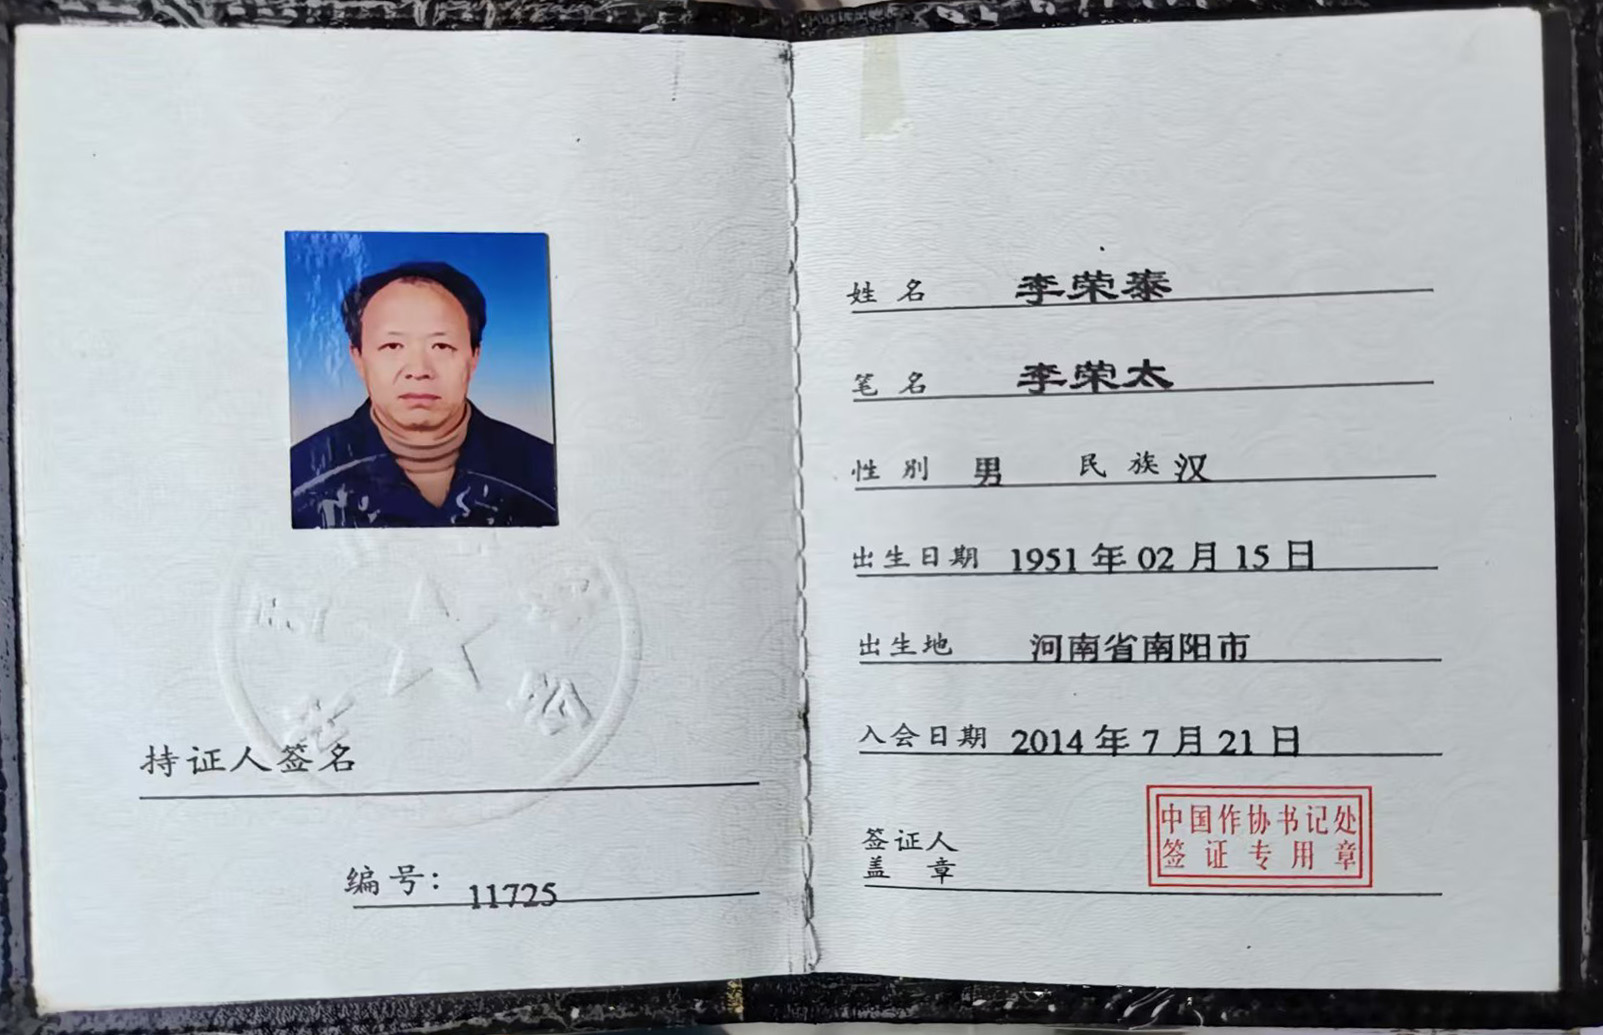 持证人签名
编号：11725
姓名 李荣泰
笔名 李荣太
性别 男 民族 汉
出生日期 1951年02月15日
出生地 河南省南阳市
入会日期 2014年7月21日
签证人
盖章
中国作协书记处
签证专用章